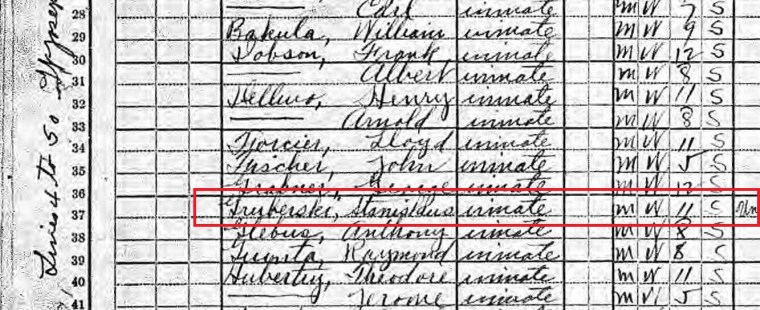 Carl inmate M W 7 S
28
Bakula, William inmate M W 9 S
29
Dobson, Frank inmate M W 12 S
30
—— Albert inmate M W 8 S
31
Henry inmate M W 11 S
32
—— Arnold inmate M W 8 S
33
Lloyd inmate M W 11 S
34
Fischer, John inmate M W 5 S
35
George inmate M W 12 S
36
Gryberski, Stanislaus inmate M W 11 S Un
37
Glebus, Anthony inmate M W 8 S
38
Guinta, Raymond inmate M W 8 S
39
Huberty, Theodore inmate M W 11 S
40
—— Jerome inmate M W 5 S
41
Lines 4 to 50